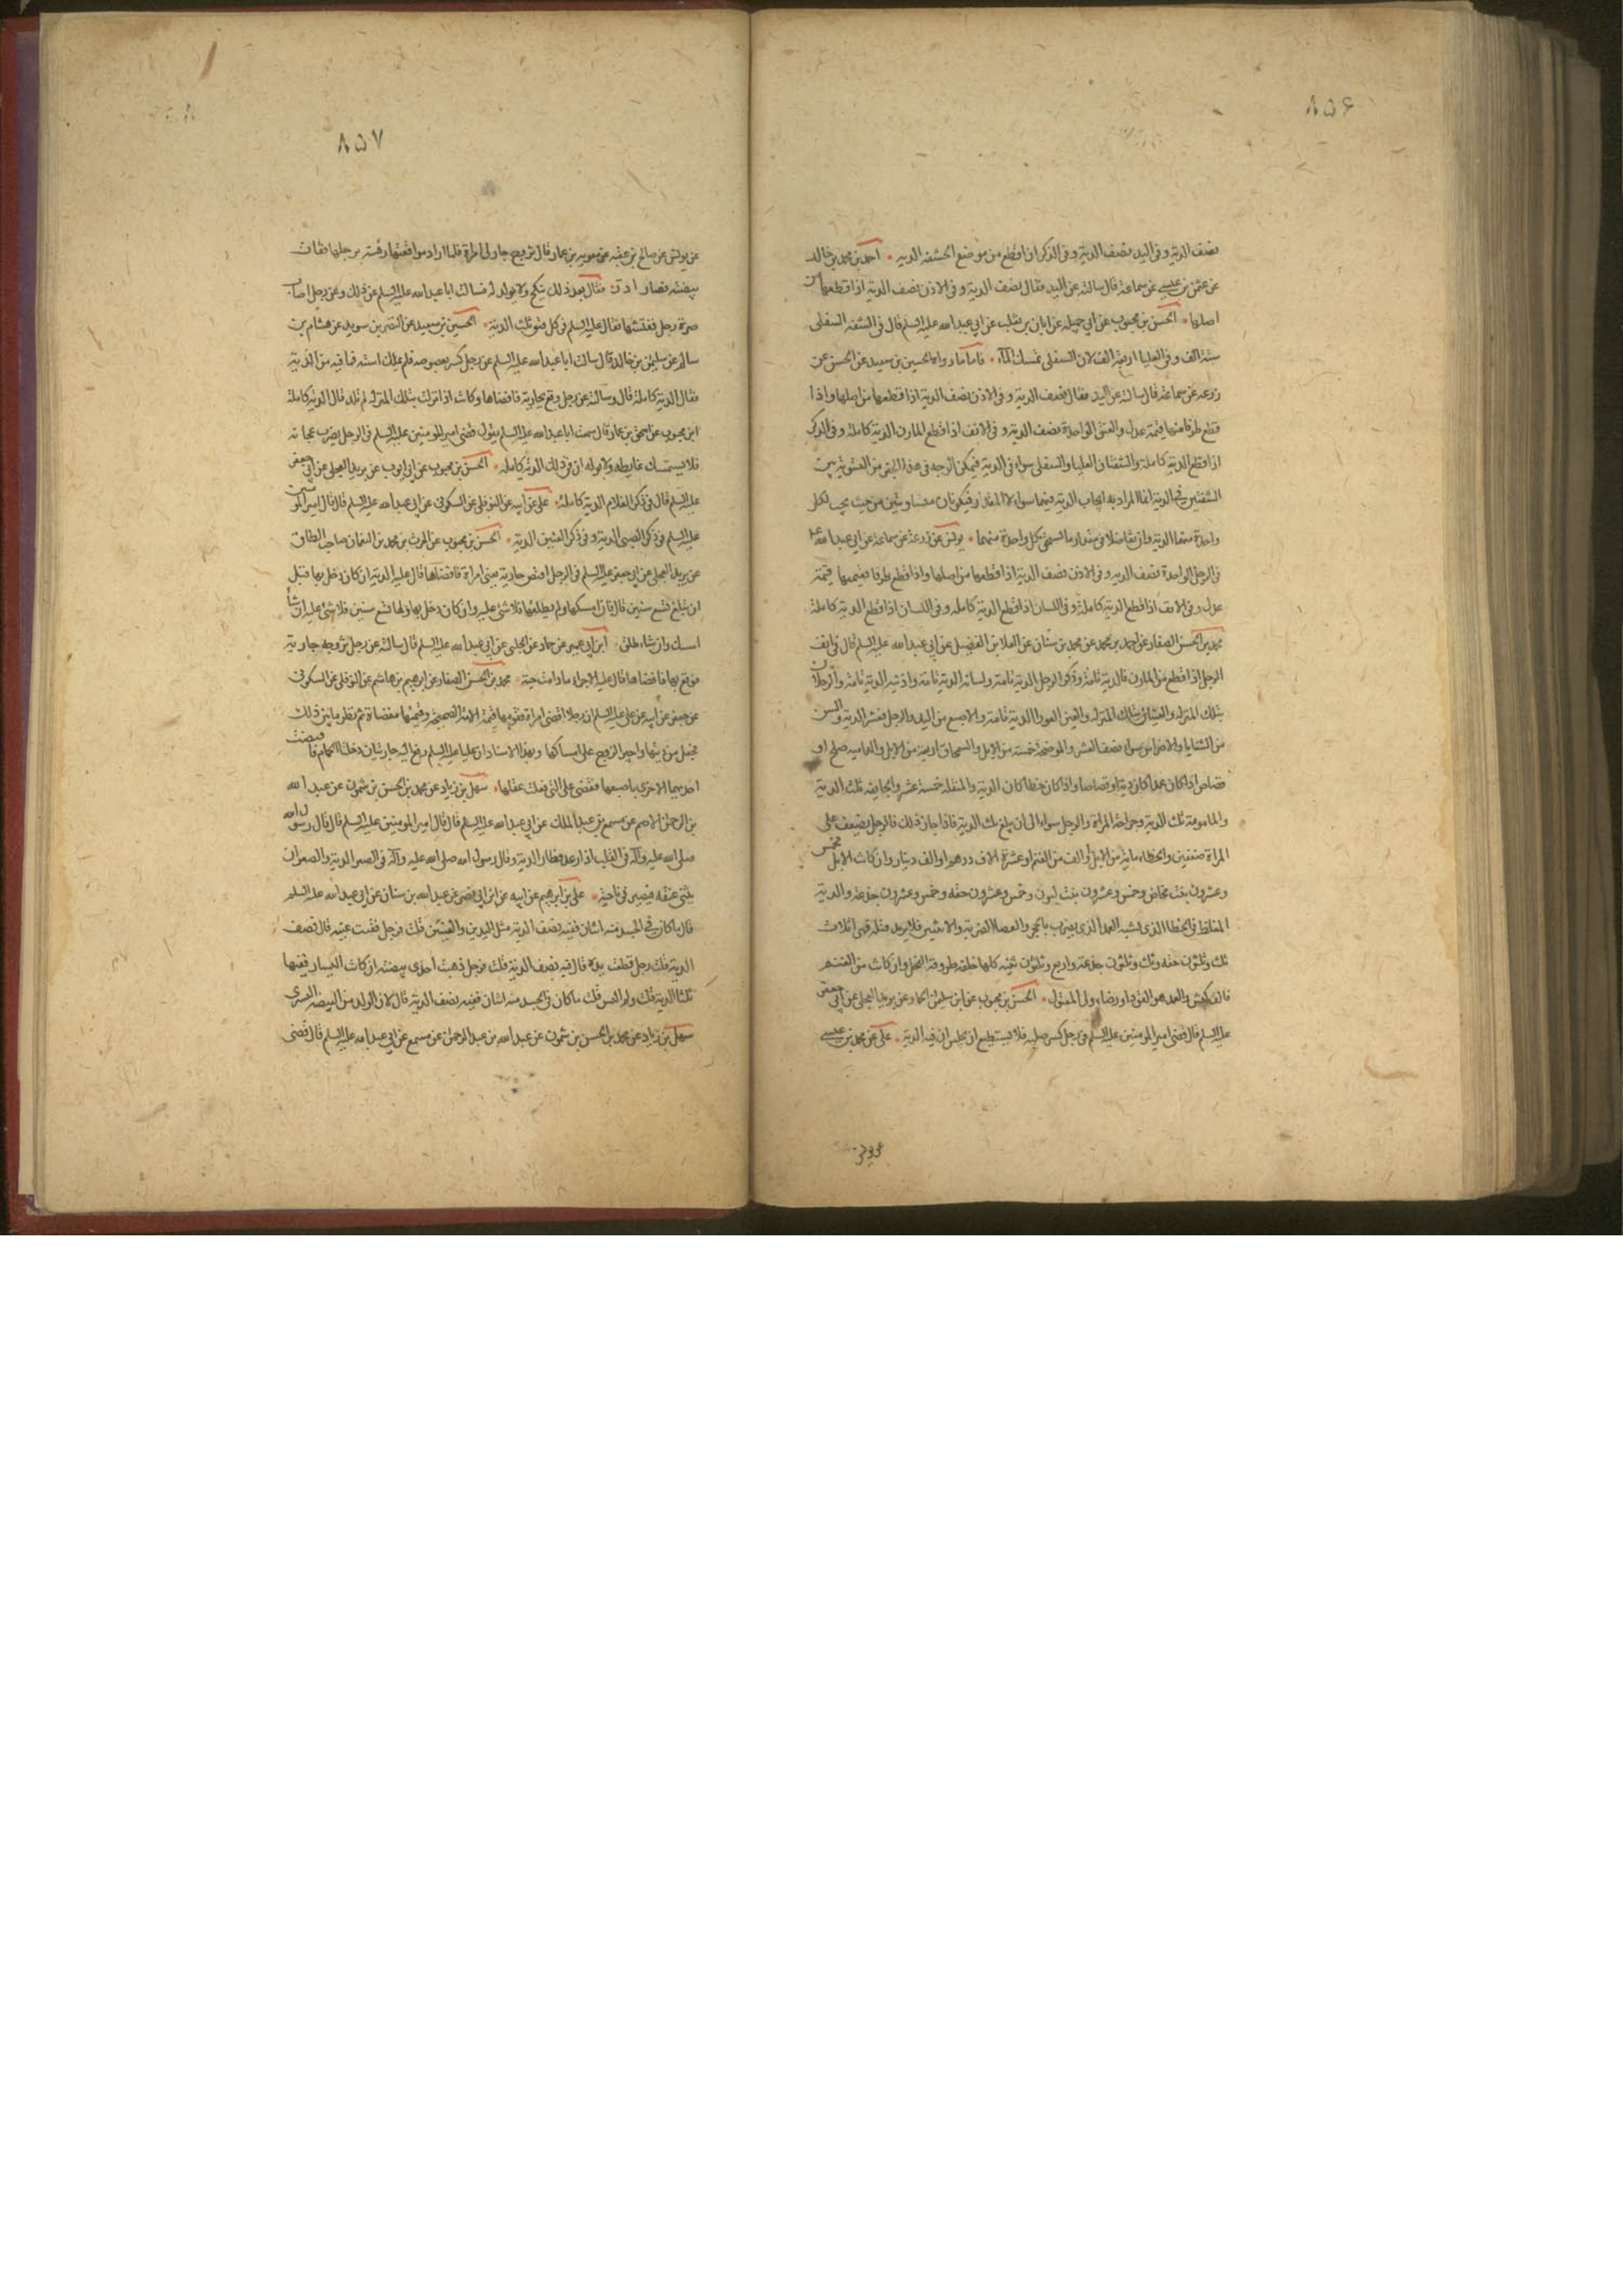 ٨٥۶
نصف الدية وفى اليد نصف الدية وفى الذكر اذا قطع من موضع الحشفة الدية احمد بن محمد بن خالد
عن عثمن بن عيسى عن سماعة قال سالته عن اليد فقال نصف الدية وفى الاذن نصف الدية اذا قطعها من
اصلها الحسن بن محبوب عن ابي جميله عن ابان بن تغلب عن ابي عبد الله عليه السلم قال فى الشفة السفلى
ستة الف وفى العليا اربعة الف لان السفلى تمسك الماء فاما ما رواه الحسين بن سعيد عن الحسن عن
زرعه عن سماعة قال سالته عن اليد فقال نصف الدية وفى الاذن نصف الدية اذا قطعها من اصلها واذا
قطع طرفا منها قيمة عدل والعين الواحدة نصف الدية وفى الانف اذا قطع المارن الدية كاملة وفى الذكر
اذا قطع الدية كاملة والشفتان العليا والسفلى سواء فى الدية فيمكن الوجه فى هذا الخبر من التسوية بين
الشفتين فى الدية انما المراد به ايجاب الدية فيهما سواء لا المقدار فيكونان متساويتين من حيث يجب لكل
واحدة منهما الدية وان تفاضلا فى مقدار ما تستحق بكل واحدة منهما يونس عن زرعة عن سماعة عن ابي عبد الله
فى الرجل الواحدة نصف الدية وفى الاذن نصف الدية اذا قطعها من اصلها واذا قطع طرفا ففيها قيمة
عدل وفى الانف اذا قطع الدية كاملة وفى اللسان اذا قطع الدية كاملة
محمد بن الحسن الصفار عن احمد بن محمد عن محمد بن سنان عن العلا بن الفضيل عن ابي عبد الله عليه السلم قال فى انف
الرجل اذا قطع من المارن فالدية تامة وذكر الرجل الدية تامة ولسانه الدية تامة واذنيه الدية تامة والرجلان
بتلك المنزلة والعينان بتلك المنزلة والعين العوراء الدية تامة والاصبع من اليد والرجل فعشر الدية والسن
من الثنايا والاضراس سواء نصف العشر والموضحة خمسة من الابل والسمحاق اربعة من الابل والداميه صلح او
قصاص اذا كان عمدا كان دية او قصاصا واذا كان خطا كان الدية والمنقله خمسة عشر والجايفه ثلث الدية
والمامومة ثلث الدية وجراحة المراة والرجل سواء الى ان يبلغ ثلث الدية فاذا جاز ذلك فالرجل يضعف على
المراة ضعفين والخطاء ماية من الابل او الف من الغنم او عشرة الاف درهم او الف دينار وان كانت الابل فخمس
وعشرون بنت مخاض وخمس وعشرون بنت لبون وخمس وعشرون حقه وخمس وعشرون جذعة والدية
المغلظة فى الخطا الذى يشبه العمد الذى يضرب بالحجر والعصا الضربة والاثنتين فلا يريد قتله فهى اثلاث
ثلث وثلثون حقه وثلث وثلثون جذعة واربع وثلثون ثنيه كلها خلفه طروقة الفحل وان كانت من الغنم
فالف كبش والعمد هو القود او رضاء ولى المقتول الحسن بن محبوب عن ابي سليمن الحمار عن بريد العجلى عن ابي جعفر
عليه السلم قال قضى امير المومنين عليه السلم فى رجل كسر صلبه فلا يستطيع ان يجلس ان فيه الدية على عن محمد بن عيسى
عن يونس
٨٥٧
عن يونس عن صالح بن عقبه عن معويه بن عمار قال تزوج جار لى امراة فلما اراد مواقعتها رفسته برجلها ففتقت
بيضته فصار ادر فكان بعد ذلك ينكح ولا يولد له فسالت ابا عبد الله عليه السلم عن ذلك وعن رجل اصاب
صرة رجل ففتقتها فقال عليه السلم فى كل فتق ثلث الدية الحسين بن سعيد عن النضر بن سويد عن هشام بن
سالم عن سليمن بن خالد قال سالت ابا عبد الله عليه السلم عن رجل كسر بعصوصه فلم يملك استه فما فيه من الدية
فقال الدية كاملة قال وسالته عن رجل وقع بجارية فافضاها وكانت اذا نزلت بتلك المنزلة لم تلد قال الدية كاملة
ابن محبوب عن اسحق بن عمار قال سمعت ابا عبد الله عليه السلم يقول قضى امير المومنين عليه السلم فى الرجل يضرب عجانه
فلا يستمسك غايطه ولا بوله ان فى ذلك الدية كاملة الحسن بن محبوب عن ابي ايوب عن بريد العجلى عن ابي جعفر
عليه السلم قال فى ذكر الغلام الدية كاملة على عن ابيه عن النوفلى عن السكونى عن ابي عبد الله عليه السلم قال قال امير المومنين
عليه السلم فى ذكر الصبى الدية وفى ذكر العنين الدية الحسن بن محبوب عن الحرث بن محمد بن النعمان صاحب الطاق
عن بريد العجلى عن ابي جعفر عليه السلم فى الرجل افتض جارية يعنى امراة فافضاها قال عليه الدية ان كان دخل بها قبل
ان تبلغ تسع سنين قال فان امسكها ولم يطلقها فلا شئ عليه وان كان دخل بها ولها تسع سنين فلا شئ عليه ان شاء
امسك وان شاء طلق ابن ابي عمير عن حماد عن الحلبى عن ابي عبد الله عليه السلم قال سالته عن رجل تزوج جارية
فوقع بها فافضاها قال عليه الاجراء ما دامت حية محمد بن الحسن الصفار عن ابرهيم بن هاشم عن النوفلى عن السكونى
عن جعفر عن ابيه عن على عليه السلم ان رجلا افضى امراة فقومها قيمة الامة الصحيحة وقيمتها مفضاة ثم نظر ما بين ذلك
فجعل من ديتها واجبر الزوج على امساكها وبهذا الاسناد ان عليا عليه السلم رفع اليه جاريتان دخلتا الحمام فافتضت
احديهما الاخرى باصبعها فقضى على التى فعلت عقلها سهل بن زياد عن محمد بن الحسن بن شمون عن عبد الله
بن الرحمن الاصم عن مسمع بن عبد الملك عن ابي عبد الله عليه السلم قال قال امير المومنين عليه السلم قال قال رسول الله
صلى الله عليه وآله فى القلب اذا ارعد فطار الدية وقال رسول الله صلى الله عليه وآله فى الصعر الدية والصعر ان
يثنى عنقه فيصير فى ناحية على بن ابرهيم عن ابيه عن ابن ابي نصر عن عبد الله بن سنان عن ابي عبد الله عليه السلم
قال ما كان فى الجسد منه اثنان ففيه نصف الدية مثل اليدين والعينين قلت فرجل فقئت عينه قال نصف
الدية قلت رجل قطعت يده قال فيه نصف الدية قلت فرجل ذهبت احدى بيضتيه ان كانت اليسار ففيها
ثلثا الدية قلت ولم اليس قلت ما كان فى الجسد منه اثنان ففيه نصف الدية قال لان الولد من البيضه اليسرى
سهل بن زياد عن محمد بن الحسن بن شمون عن عبد الله بن عبد الرحمن عن مسمع عن ابي عبد الله عليه السلم قال قضى